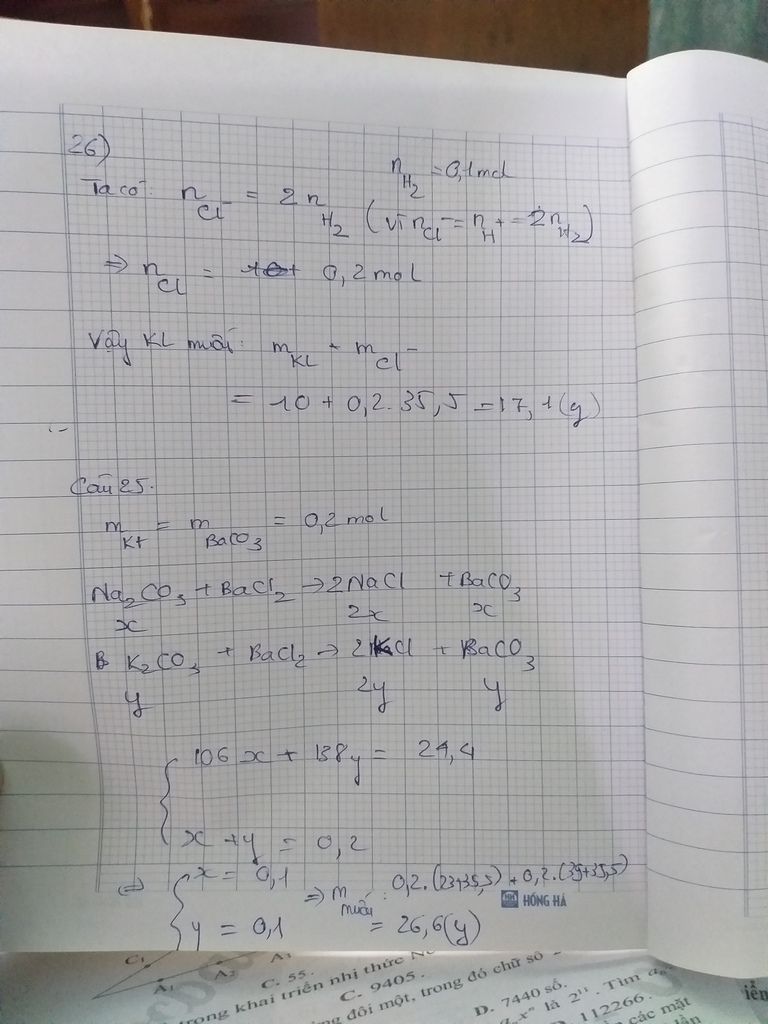 26)
n H₂ = 0,1 mol
Ta có: n Cl⁻ = 2 n H₂ (vì n Cl⁻ = n H⁺ = 2n H₂)
⇒ n Cl = 0,2 mol
Vậy KL muối: m KL + m Cl⁻
= 10 + 0,2. 35,5 = 17,1 (g)
Câu 25.
m K+ = m BaCO₃ = 0,2 mol
Na₂CO₃ + BaCl₂ → 2NaCl + BaCO₃
x 2x x
B K₂CO₃ + BaCl₂ → 2KCl + BaCO₃
y 2y y
{ 106 x + 138y = 24,4
x + y = 0,2
⇔ { x = 0,1 ⇒ m muối : 0,2. (23+35,5) + 0,2. (39+35,5)
y = 0,1 = 26,6 (g)
HH HỒNG HÀ
C₁
A₁ A₂ A₃
C. 55.
trong khai triển nhị thức
C. 9405.
đôi một, trong đó chữ số
D. 7440 số.
xⁿ là 2¹¹. Tìm aₙ
D. 112266.
các mặt